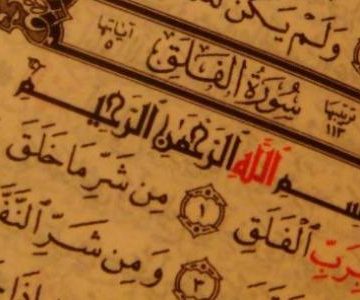 وَلَمْ يَكُن
آياتها ٥ سُورَةُ الْفَلَقِ ترتيبها ١١٣
بِسْمِ اللَّهِ الرَّحْمَٰنِ الرَّحِيمِ
بِرَبِّ الْفَلَقِ ١ مِن شَرِّ مَا خَلَقَ
٣ وَمِن شَرِّ النَّفَّ